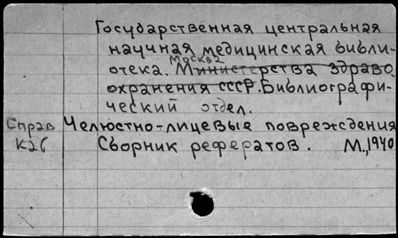 Государственная центральная
научная медицинская библи-
Москва
отека. Министерства здраво
охранения СССР. Библиографи-
ческий отдел.
Справ Челюстно-лицевые повреждения
К26 Сборник рефератов. М., 1940